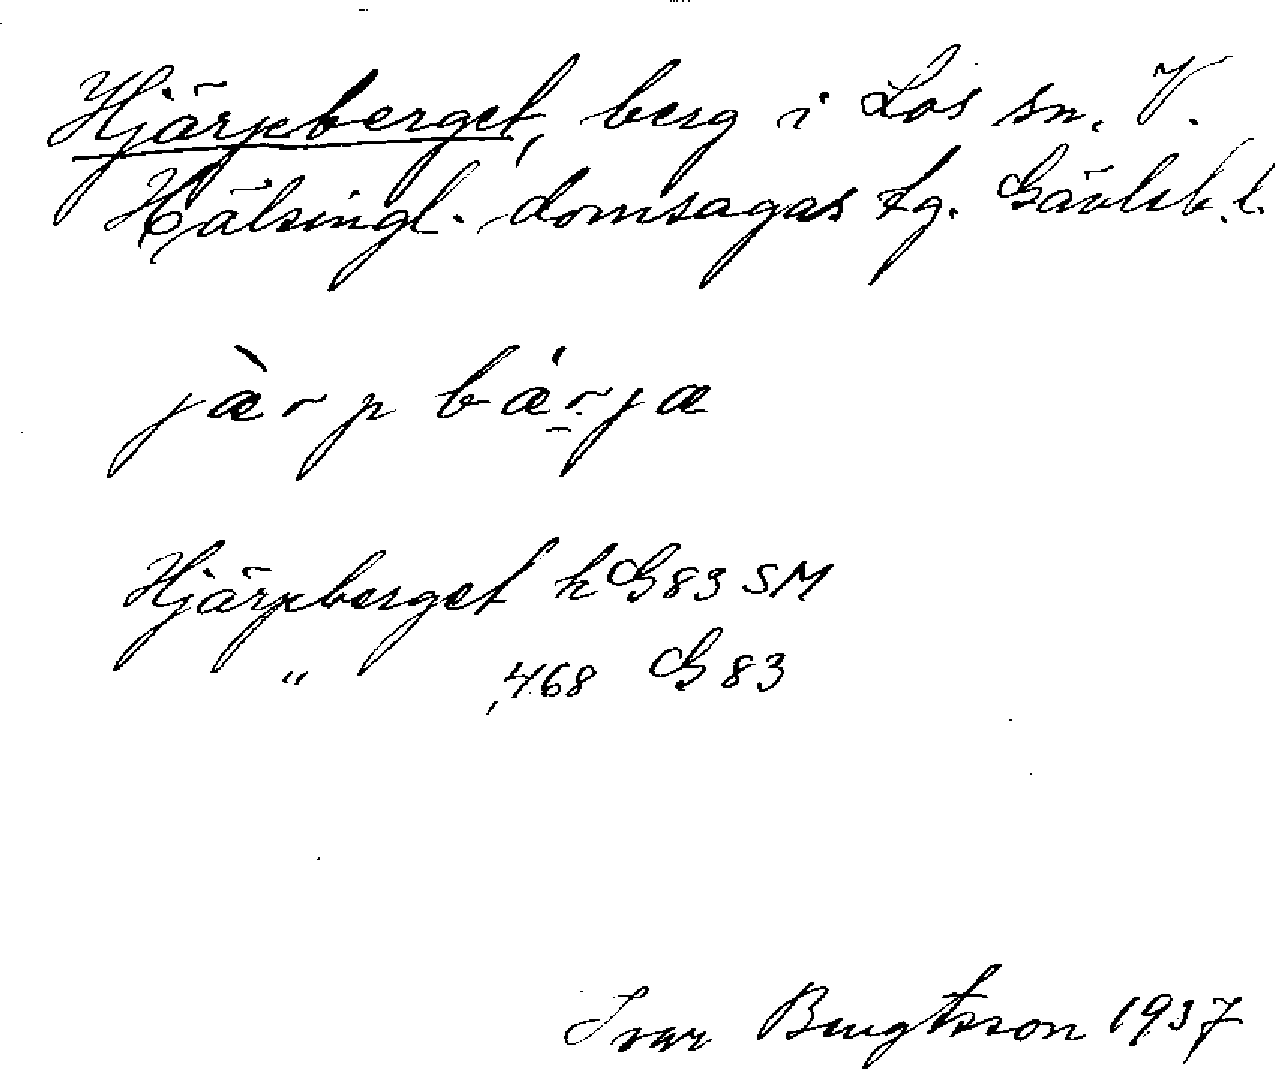 Hjärpberget, berg i Los sn. V.
Hälsingl. domsagas tg. Gävleb.l.
jæ̀rpbǽrjæ
Hjärpberget k G83 SM
" , 468 G83
Ivar Bengtsson 1937